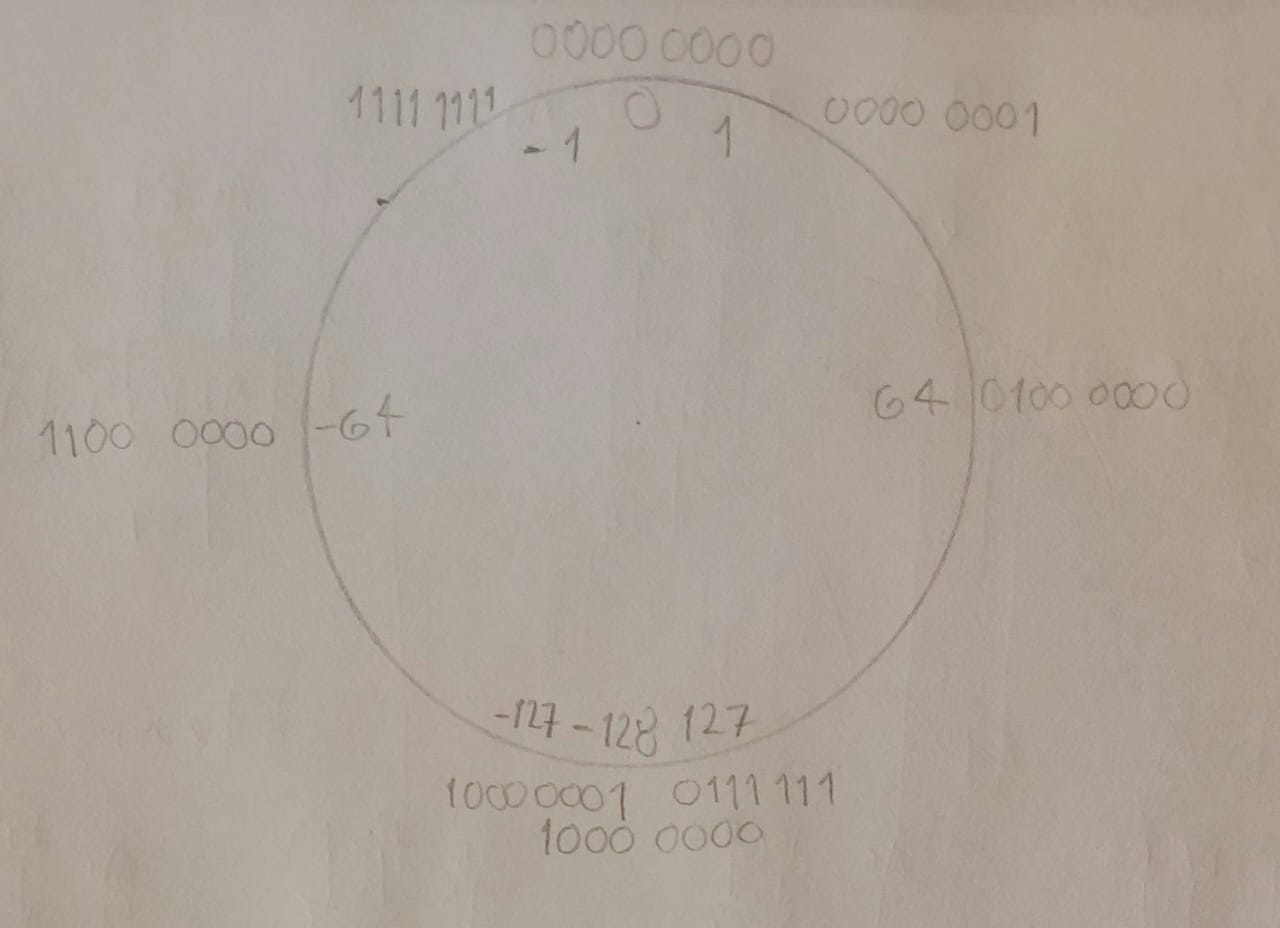 0000 0000
1111 1111 0000 0001
0
-1 1
64 0100 0000
1100 0000 -64
-127 -128 127
1000 0001 0111 111
1000 0000